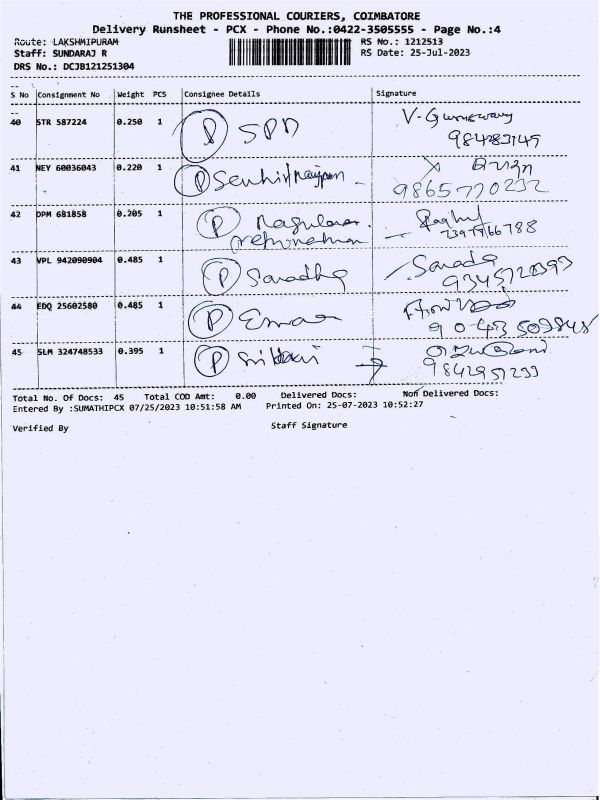 THE PROFESSIONAL COURIERS, COIMBATORE
Delivery Runsheet - PCX - Phone No.:0422-3505555 - Page No.:4
Route: LAKSHMIPURAM RS No.: 1212513
Staff: SUNDARAJ R RS Date: 25-Jul-2023
DRS No.: DCJB121251304
S No Consignment No Weight PCS Consignee Details Signature
40 STR 587224 0.250 1 P SPD V-
41 NEY 60036043 0.220 1 P
9865770232
42 DPM 681858 0.205 1 P
43 VPL 942090904 0.485 1 P Saradha Sarada
9345728393
44 EDQ 25602580 0.485 1 P
45 SLM 324748533 0.395 1 P
9842951233
Total No. Of Docs: 45 Total COD Amt: 0.00 Delivered Docs: Non Delivered Docs:
Entered By :SUMATHIPCX 07/25/2023 10:51:58 AM Printed On: 25-07-2023 10:52:27
Verified By Staff Signature